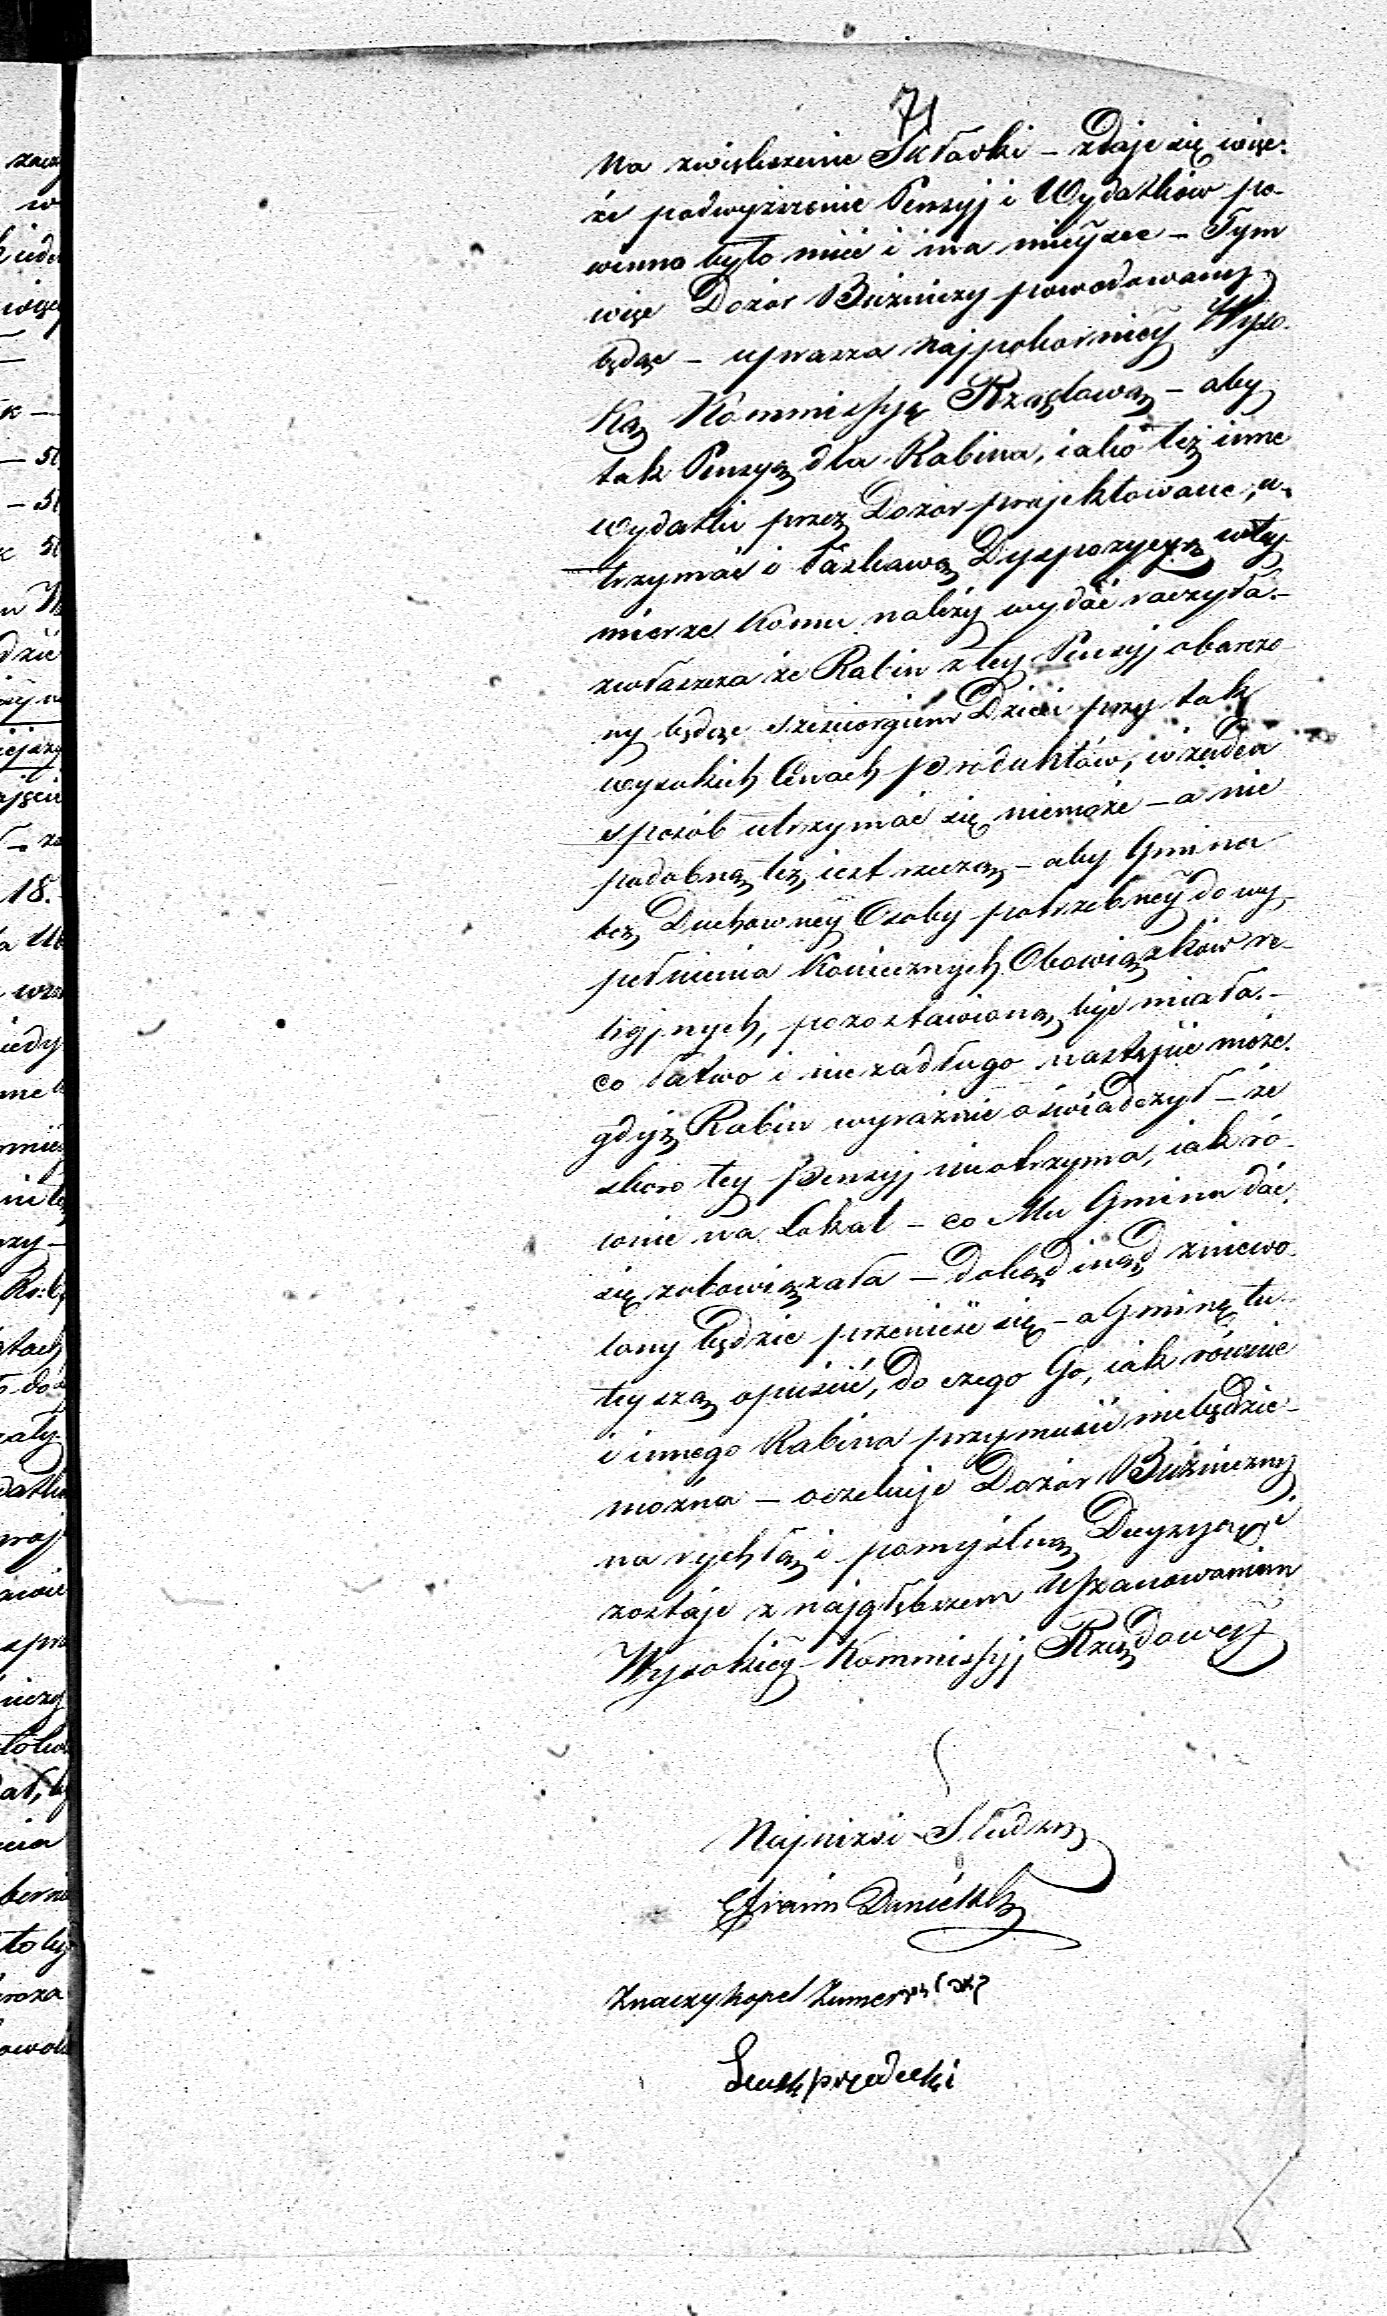 71
na zwiększenie Składki – zdaje się więc.
że podwyższenie Pensyj i Wydatków po-
winno było mieć i ma mieysce – Tym
więc Dozór Bużniczy powodowany
będąc – uprasza najpokorniey Wyso-
ką Kommissyę Rządową – aby
tak Pensyą dla Rabina, iako też inne
wydatki przez Dozór projektowane, u-
trzymać i łaskawą Dyspozycyą w tey
mierze komu należy wydać raczyła. –
zwłaszcza że Rabin z tey Pensyj obarczo-
ny będąc sześciorgiem Dzieci przy tak
wysokich Cenach produktów, w żaden
sposób utrzymać się niemoże – a nie
podobną też iest rzeczą – aby Gmina
bez Duchowney Osoby potrzebney do wy-
pełnienia koniecznych Obowiązków re-
ligijnych, pozostawioną być miała. –
co łatwo i niezadługo nastąpić może.
gdyż Rabin wyraźnie oświadczył – że
skoro tey Pensyj nieotrzyma, iak ró-
wnie na Lokal – co Mu Gmina dać
się zobowiązała – dokąd inąd zniewo-
lony będzie przenieść się – a Gminę tu-
teyszą opuścić, do czego Go, iak równie
i innego Rabina przymusić niebędzie
można – oczekuje Dozór Bużniczny
na rychłą i pomyślną Decyzyą i
zostaje z najgłębszem Uszanowaniem
Wysokiey Kommissyj Rządowey
Najniżsi Słudzy
Efraim Danielak
Znaczy kopel Zumer
przedecki